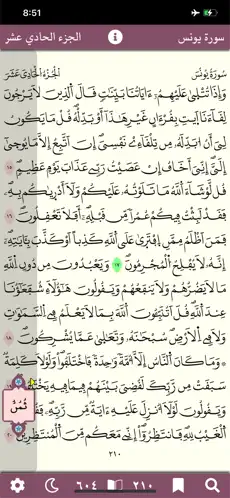 8:51
سورة يونس
الجزء الحادي عشر
سُورَةُ يُونُسَ
الجُزءُ الحَادِي عَشَرَ
وَإِذَا تُتْلَىٰ عَلَيْهِمُۥٓ ءَايَاتُنَا بَيِّنَٰتٖ قَالَ ٱلذِينَ لَا يَرْجُونَ
لِقَآءَنَا ٱيتِ بِقُرْءَانٍ غَيْرِ هَٰذَآ أَوْ بَدِّلْهُ قُلْ مَا يَكُونُ
لِيَ أَنُ ابَدِّلَهُۥ مِن تِلْقَآءِے نَفْسِيَ إِنَ اَتَّبِعُ إِلَّا مَا يُوحَىٰٓ
إِلَيَّ إِنِّيَ أَخَافُ إِنْ عَصَيْتُ رَبِّي عَذَابَ يَوْمٍ عَظِيمٖ ١٥
قُل لَّوْ شَآءَ ٱللَّهُ مَا تَلَوْتُهُۥ عَلَيْكُمْ وَلَآ أَدْر۪ىٰكُم بِهِۦ
فَقَدْ لَبِثْتُ فِيكُمْ عُمُراٗ مِّن قَبْلِهِۦٓ أَفَلَا تَعْقِلُونَ ١٦
فَمَنَ اَظْلَمُ مِمَّنِ اِفْتَر۪ىٰ عَلَى ٱللَّهِ كَذِباً اَوْ كَذَّبَ بِـَٔايَٰتِهِۦٓ
إِنَّهُۥ لَا يُفْلِحُ ٱلْمُجْرِمُونَ ١٧ وَيَعْبُدُونَ مِن دُونِ ٱللَّهِ
مَا لَا يَضُرُّهُمْ وَلَا يَنفَعُهُمْ وَيَقُولُونَ هَٰٓؤُلَآءِ شُفَعَٰٓؤُنَا
عِندَ ٱللَّهِ قُلَ اَتُنَبِّـُٔونَ ٱللَّهَ بِمَا لَا يَعْلَمُ فِي ٱلسَّمَٰوَٰتِ
وَلَا فِي ٱلْأَرْضِ سُبْحَٰنَهُۥ وَتَعَٰلَىٰ عَمَّا يُشْرِكُونَ ١٨
وَمَا كَانَ ٱلنَّاسُ إِلَّآ أُمَّةٗ وَٰحِدَةٗ فَاخْتَلَفُواْ وَلَوْلَا كَلِمَةٞ
سَبَقَتْ مِن رَّبِّكَ لَقُضِيَ بَيْنَهُمْ فِيمَا فِيهِ يَخْتَلِفُونَ
وَيَقُولُونَ لَوْلَآ أُنزِلَ عَلَيْهِ ءَايَةٞ مِّن رَّبِّهِۦ فَقُلِ
اِنَّمَا ٱلْغَيْبُ لِلهِ فَانتَظِرُوٓاْ إِنِّي مَعَكُم مِّنَ ٱلْمُنتَظِرِينَ ٢٠
ثُمُنْ
٢١٠
٦٠٤
٢١٠